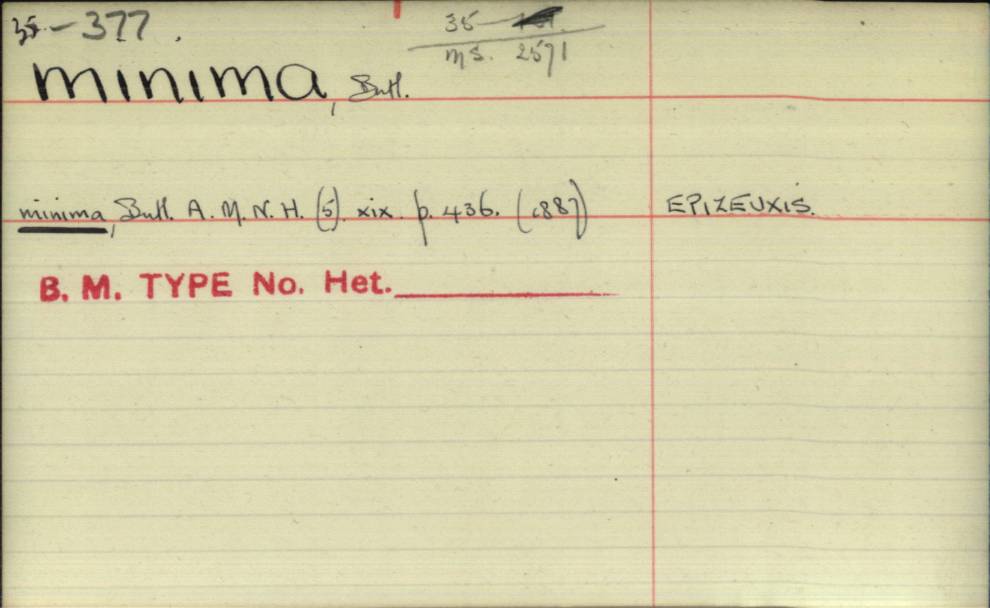 35-377.
35
MS. 2571
minima, Butl.
minima, Butl. A. M. N. H. (5) xix. p. 436. (1887)
EPIZEUXIS.
B. M. TYPE No. Het.